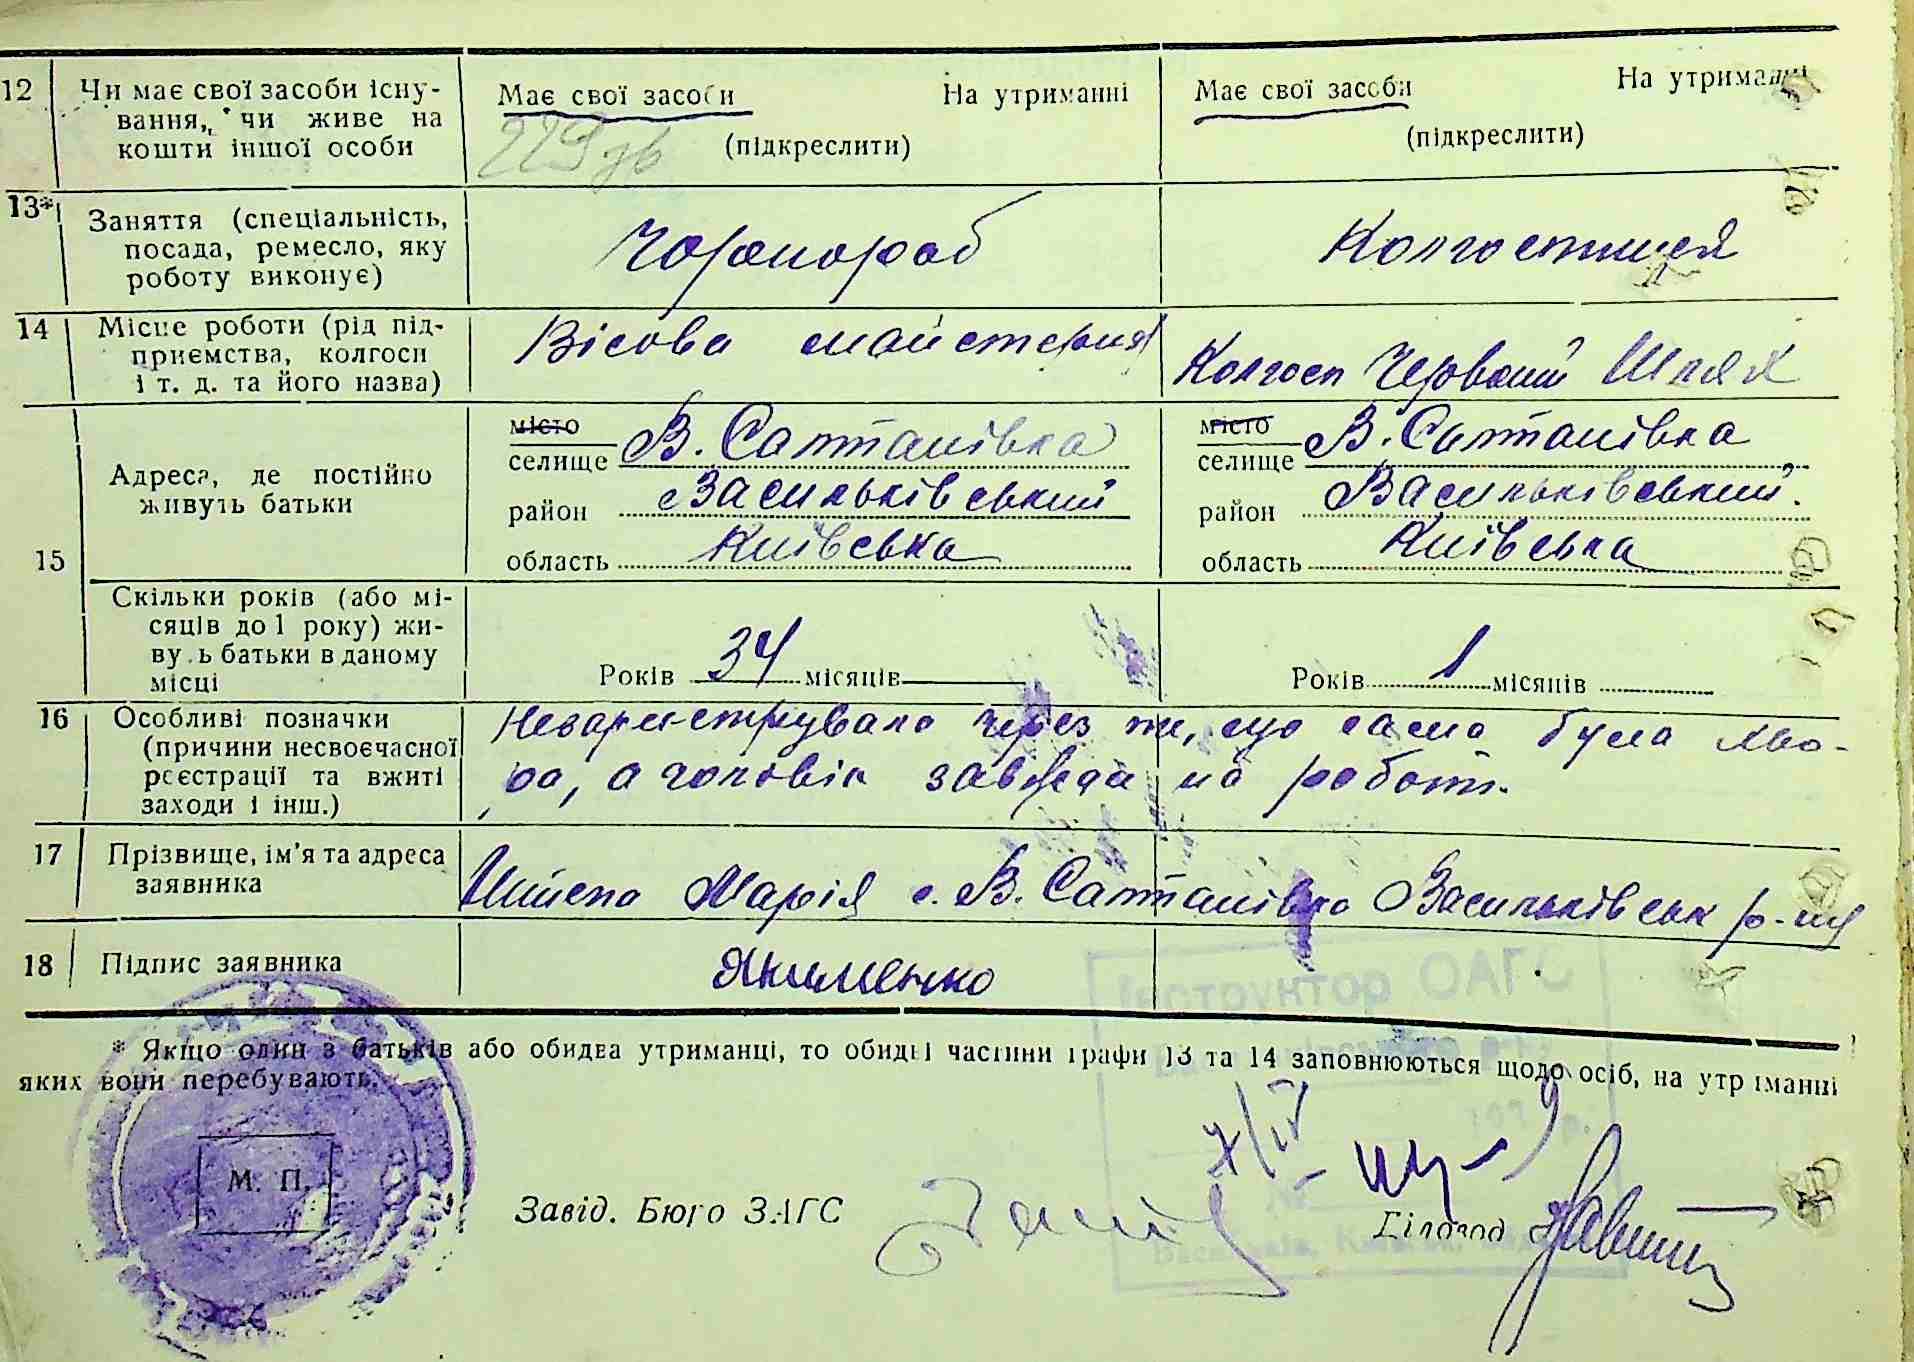 12 Чи має свої засоби існу-
вання, чи живе на
кошти іншої особи
Має свої засоби На утриманні
(підкреслити)
Має свої засоби На утриманні
(підкреслити)
13* Заняття (спеціальність,
посада, ремесло, яку
роботу виконує)
Чорнороб
Колгоспниця
14 Місце роботи (рід під-
приємства, колгосп
і т. д. та його назва)
Вісова майстерня
Колгосп Червоний Шлях
15
Адреса, де постійно
живуть батьки
місто
селище В. Салтанівка
район Васильківський
область Київська
місто
селище В. Салтанівка
район Васильківський
область Київська
Скільки років (або мі-
сяців до 1 року) жи-
вуть батьки в даному
місці
Років 34 місяців
Років 1 місяців
16 Особливі позначки
(причини несвоєчасної
реєстрації та вжиті
заходи і інш.)
Незареєструвала через те, що сама була хво-
ра, а чоловік завжди на роботі.
17 Прізвище, ім'я та адреса
заявника
Марія с. В. Салтанівка Васильківськ р-ну
18 Підпис заявника
Якименко
* Якщо один з батьків або обидва утриманці, то обидві частини графи 13 та 14 заповнюються щодо осіб, на утриманні
яких вони перебувають.
М. П.
Завід. Бюро ЗАГС
Діловод
Інструктор ОАГС
7/IV